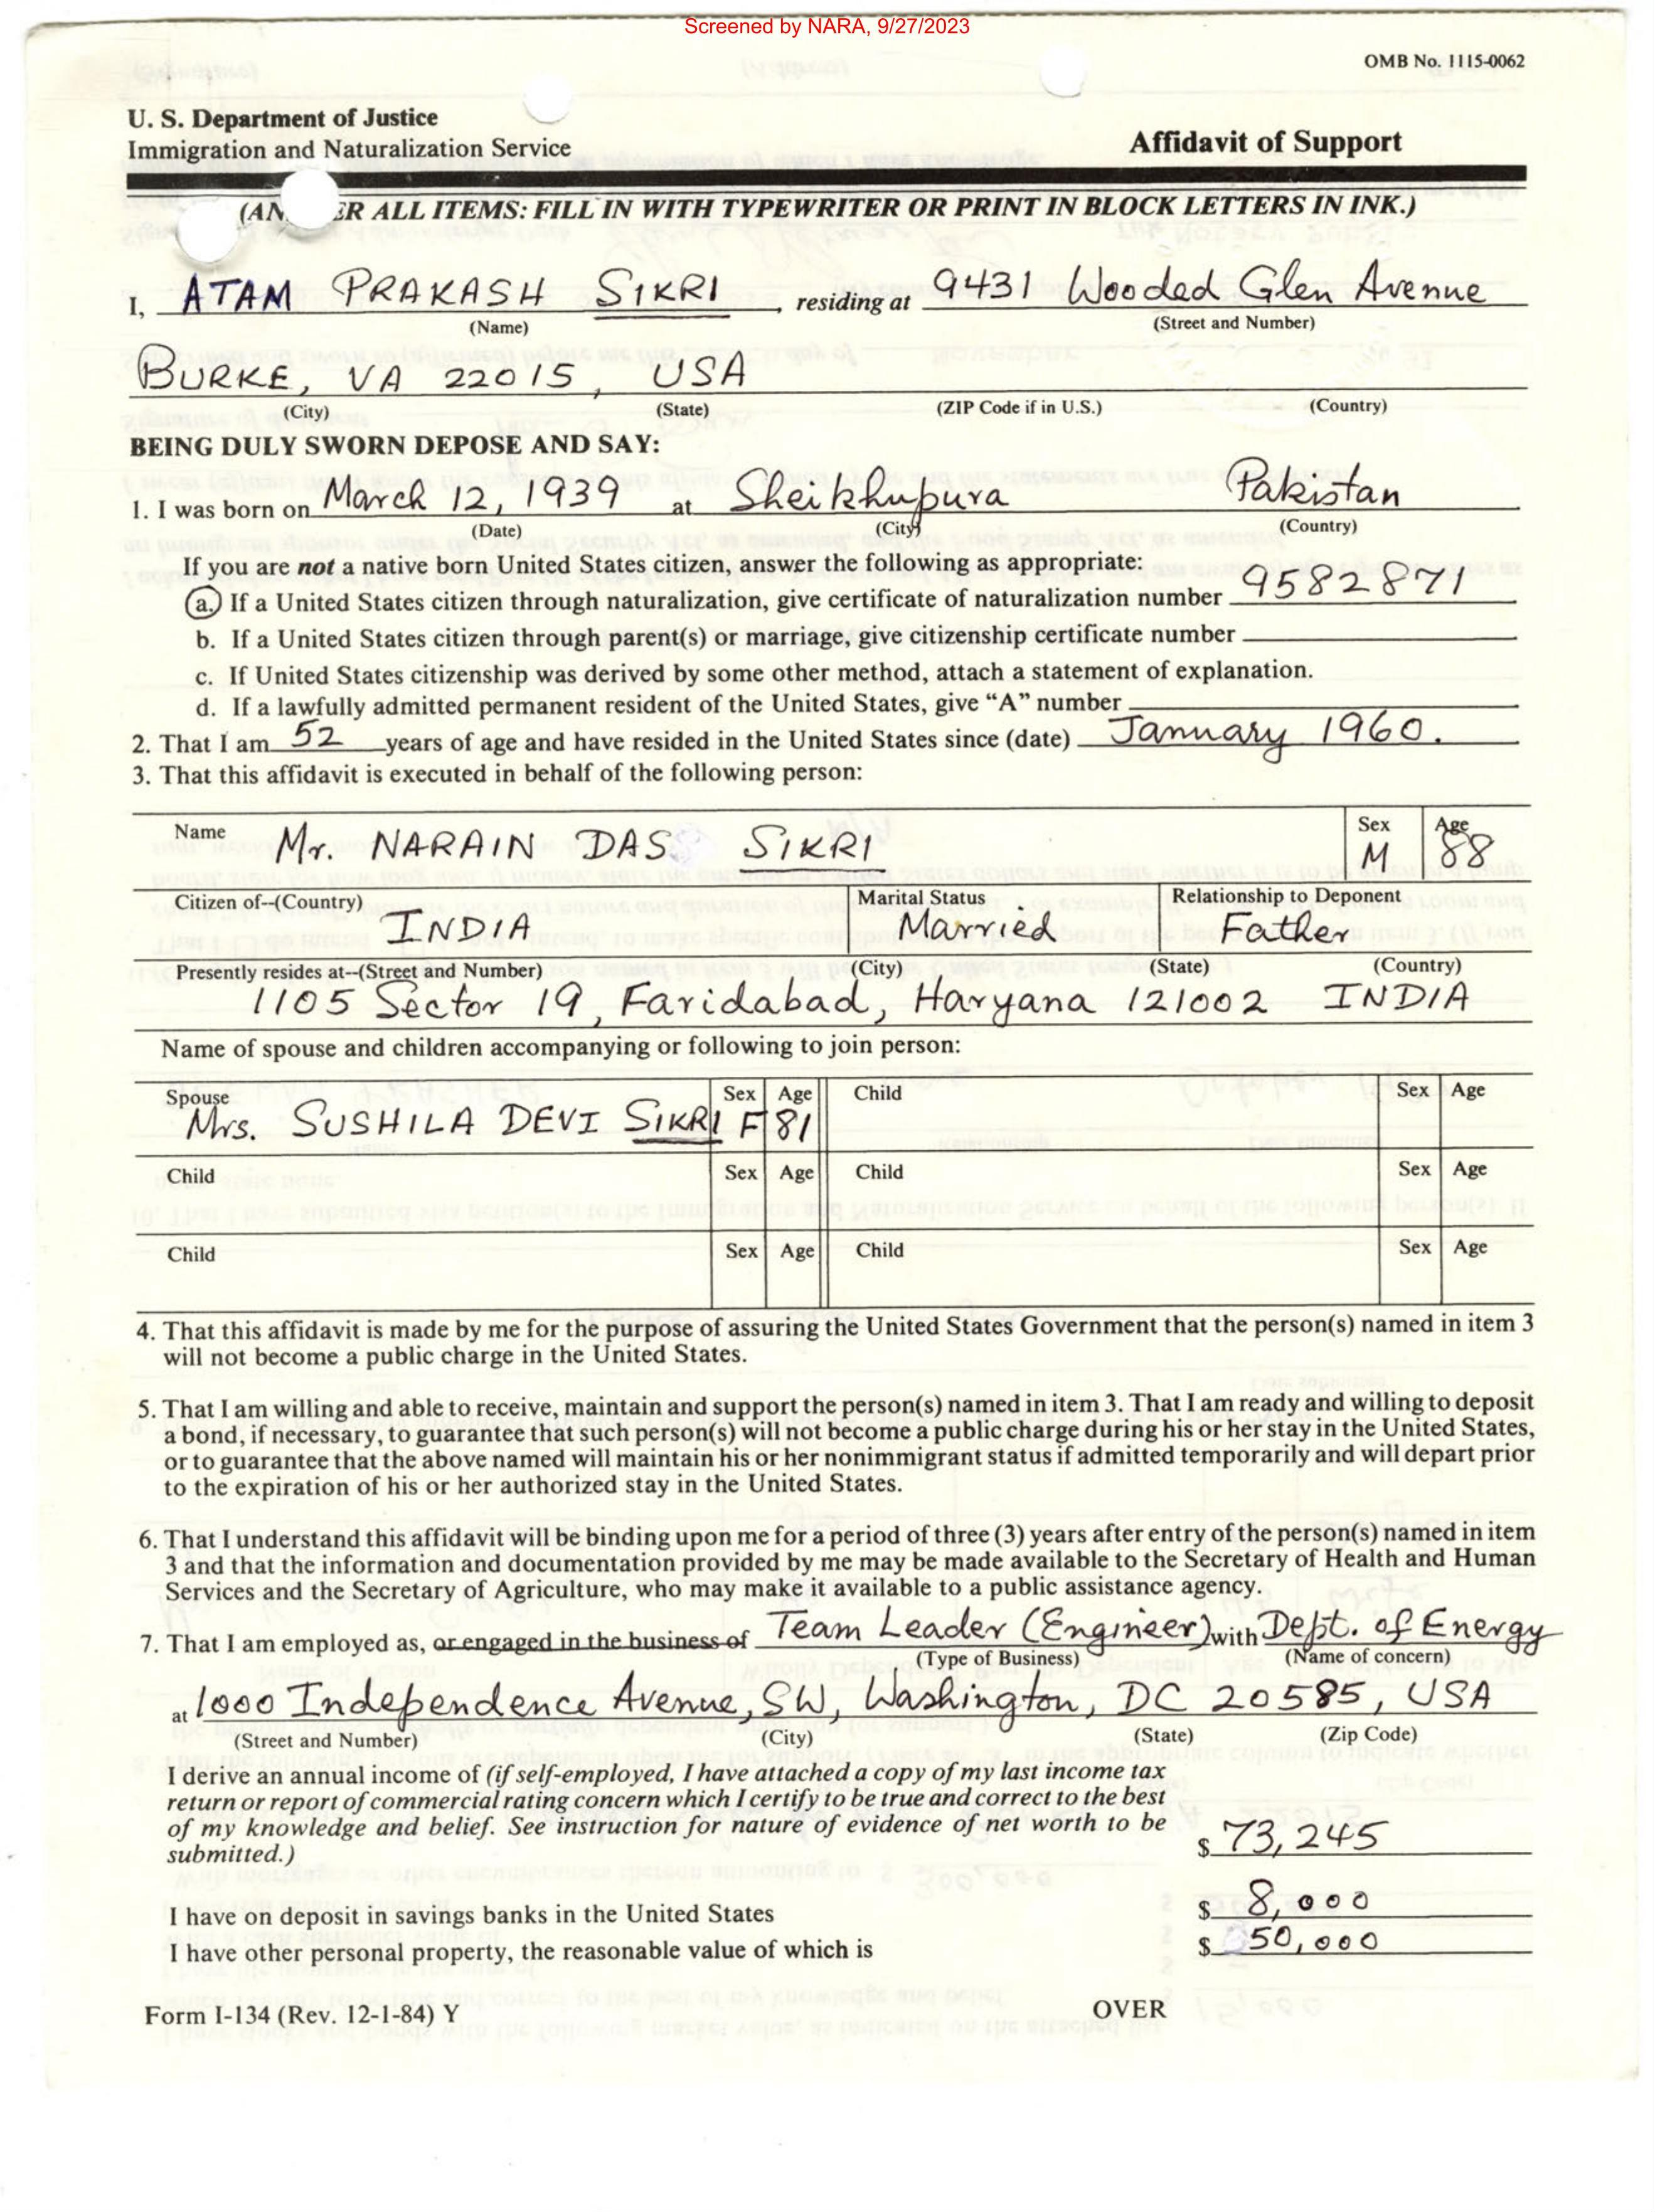 Screened by NARA, 9/27/2023
OMB No. 1115-0062
U. S. Department of Justice
Immigration and Naturalization Service
Affidavit of Support
(AN ER ALL ITEMS: FILL IN WITH TYPEWRITER OR PRINT IN BLOCK LETTERS IN INK.)
I, ATAM PRAKASH SIKRI, residing at 9431 Wooded Glen Avenue
(Name) (Street and Number)
BURKE, VA 22015, USA
(City) (State) (ZIP Code if in U.S.) (Country)
BEING DULY SWORN DEPOSE AND SAY:
1. I was born on March 12, 1939 at Sheikhupura Pakistan
(Date) (City) (Country)
If you are not a native born United States citizen, answer the following as appropriate:
a. If a United States citizen through naturalization, give certificate of naturalization number 9582871
b. If a United States citizen through parent(s) or marriage, give citizenship certificate number
c. If United States citizenship was derived by some other method, attach a statement of explanation.
d. If a lawfully admitted permanent resident of the United States, give “A” number
2. That I am 52 years of age and have resided in the United States since (date) January 1960.
3. That this affidavit is executed in behalf of the following person:
Name Mr. NARAIN DAS SIKRI Sex M Age 88
Citizen of--(Country) INDIA Marital Status Married Relationship to Deponent Father
Presently resides at--(Street and Number) (City) (State) (Country)
1105 Sector 19, Faridabad, Haryana 121002 INDIA
Name of spouse and children accompanying or following to join person:
Spouse Sex Age Child Sex Age
Mrs. SUSHILA DEVI SIKRI F 81
Child Sex Age Child Sex Age
Child Sex Age Child Sex Age
4. That this affidavit is made by me for the purpose of assuring the United States Government that the person(s) named in item 3
will not become a public charge in the United States.
5. That I am willing and able to receive, maintain and support the person(s) named in item 3. That I am ready and willing to deposit
a bond, if necessary, to guarantee that such person(s) will not become a public charge during his or her stay in the United States,
or to guarantee that the above named will maintain his or her nonimmigrant status if admitted temporarily and will depart prior
to the expiration of his or her authorized stay in the United States.
6. That I understand this affidavit will be binding upon me for a period of three (3) years after entry of the person(s) named in item
3 and that the information and documentation provided by me may be made available to the Secretary of Health and Human
Services and the Secretary of Agriculture, who may make it available to a public assistance agency.
7. That I am employed as, or engaged in the business of Team Leader (Engineer) with Dept. of Energy
(Type of Business) (Name of concern)
at 1000 Independence Avenue, SW, Washington, DC 20585, USA
(Street and Number) (City) (State) (Zip Code)
I derive an annual income of (if self-employed, I have attached a copy of my last income tax
return or report of commercial rating concern which I certify to be true and correct to the best
of my knowledge and belief. See instruction for nature of evidence of net worth to be
submitted.) $ 73,245
I have on deposit in savings banks in the United States $ 8,000
I have other personal property, the reasonable value of which is $ 50,000
Form I-134 (Rev. 12-1-84) Y OVER